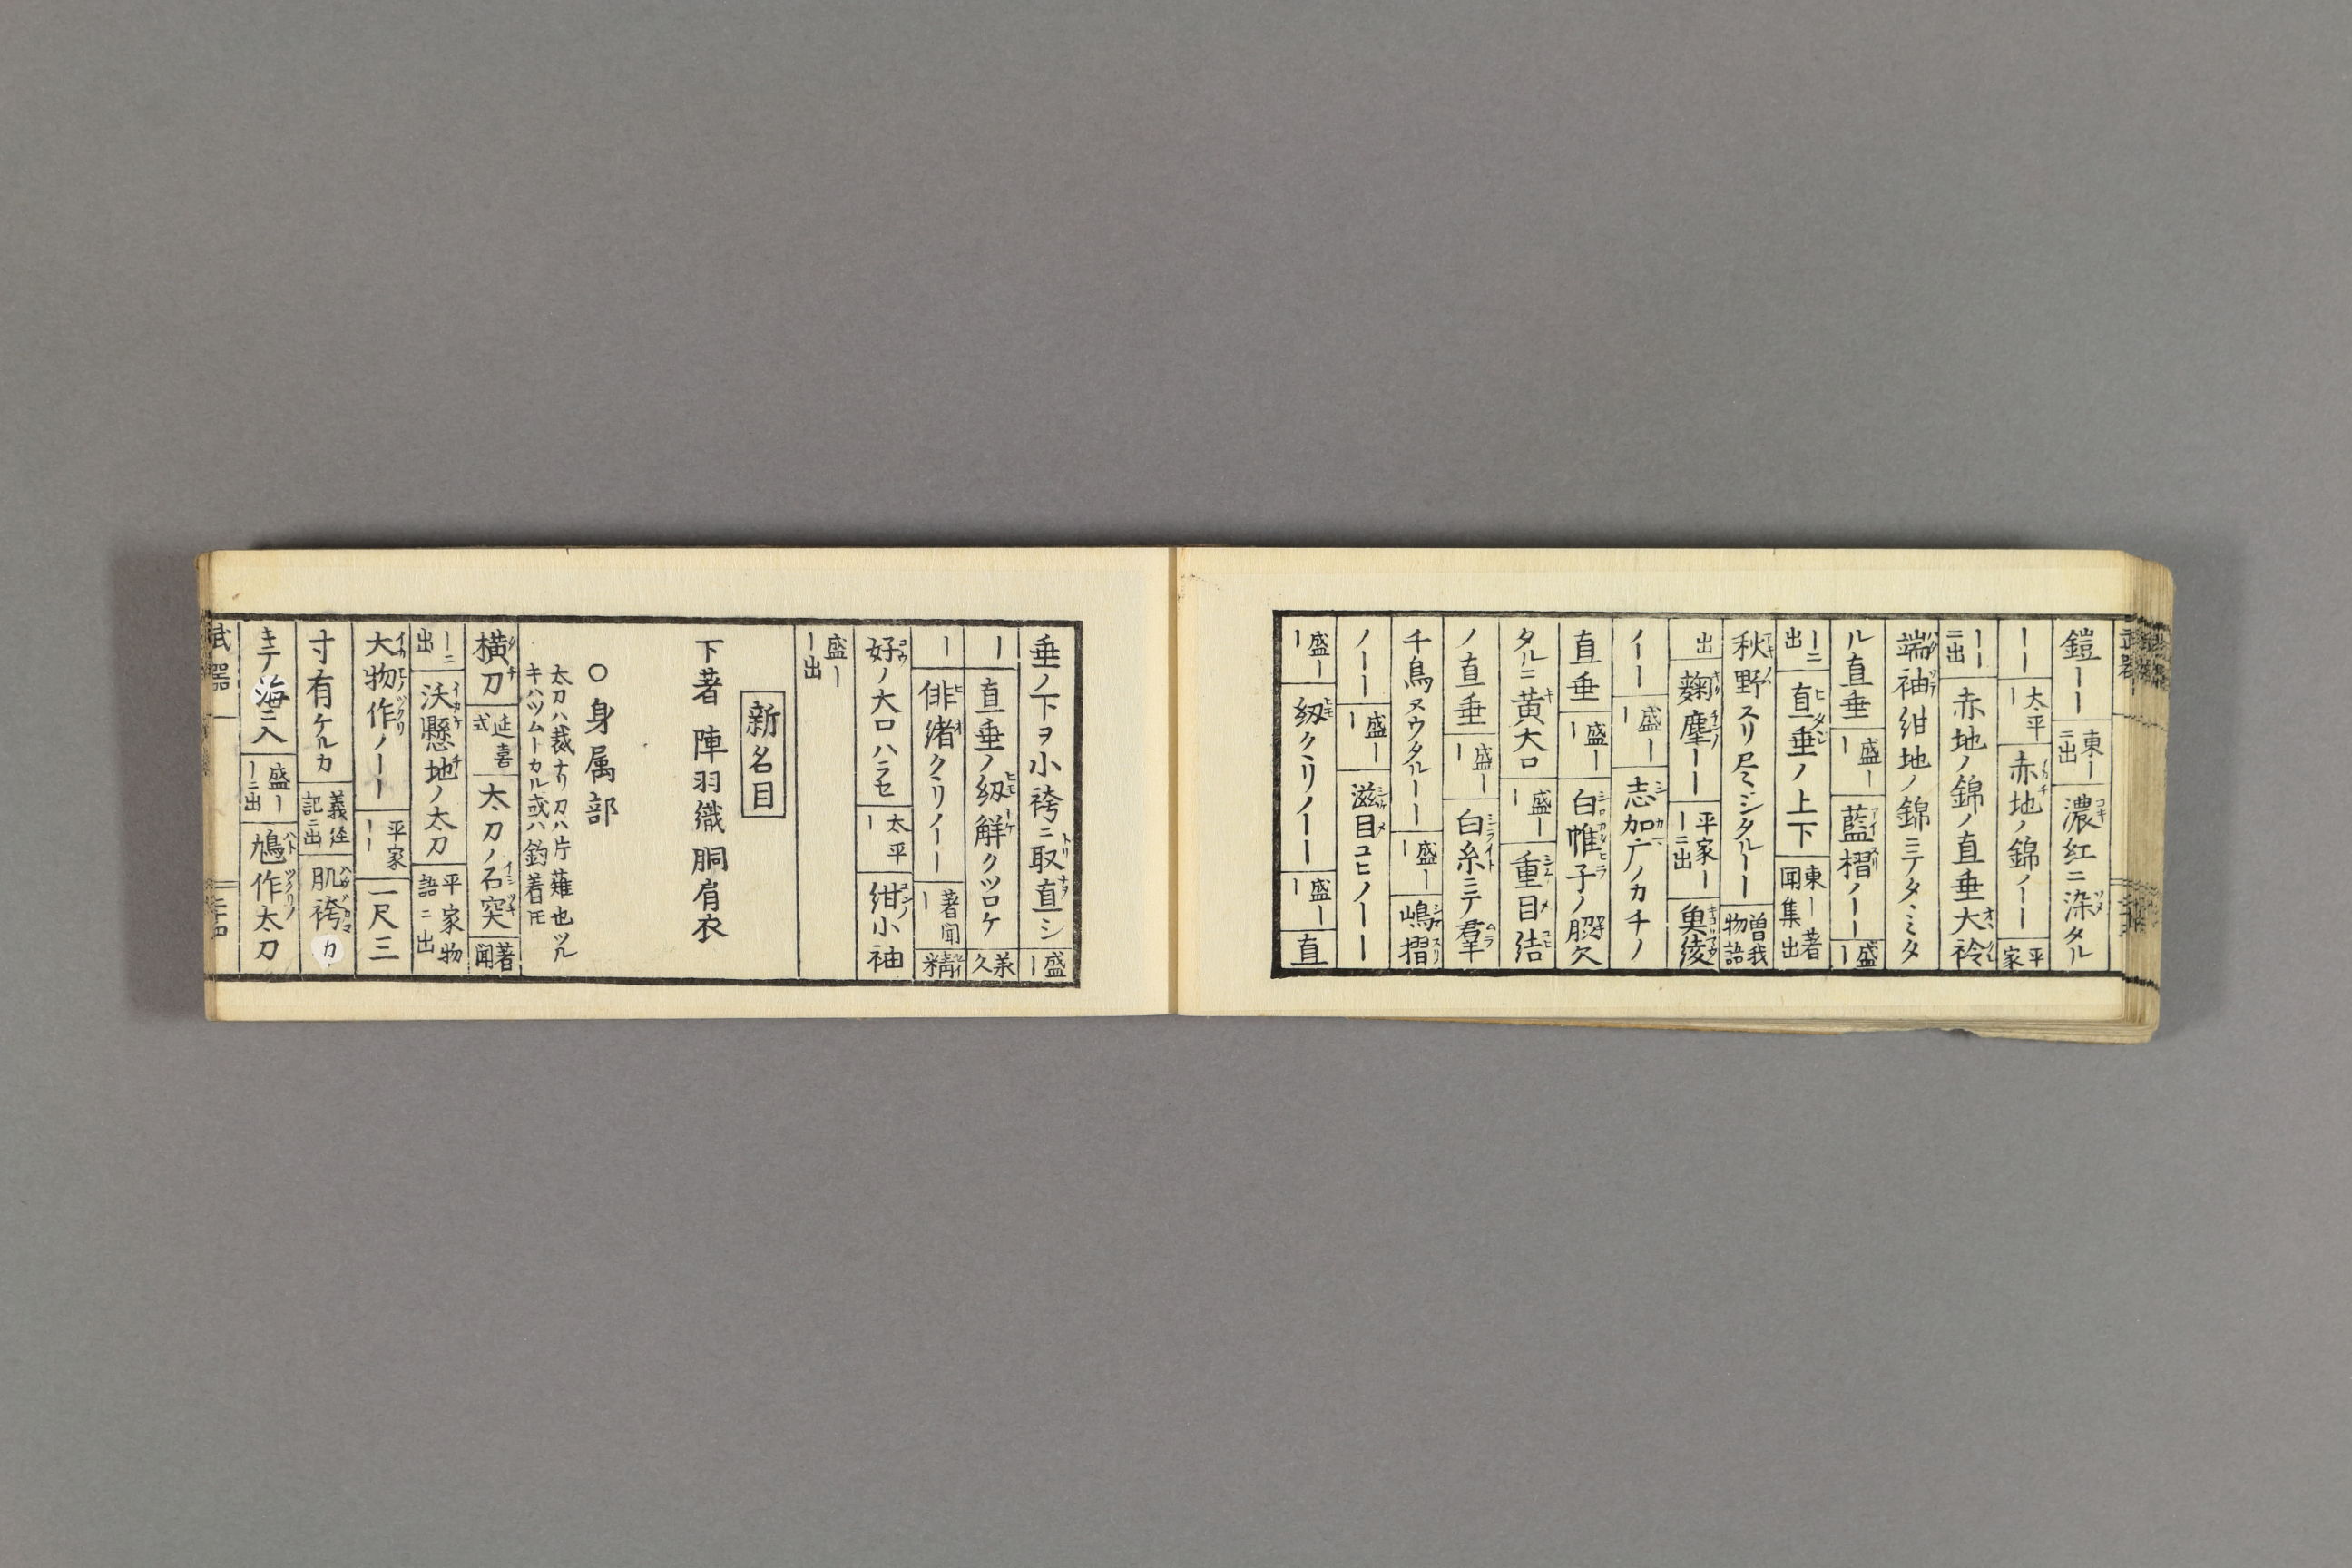 鎧ーー 東ーニ出 濃紅ニ染タル
ーー 太平ー 赤地ノ錦ノーー 平家
ーーニ出 赤地ノ錦ノ直垂大衿
端袖紺地ノ錦ニテタミタ
ル直垂 盛ーー 藍摺ノーー 盛ーー
ーニ出 直垂ノ上下 東ー著聞集出
秋野スリ尽ミシタルーー 曽我物語
出 麹塵ーー 平家ーーニ出 魚綾
イーー 盛ーー 志加广ノカチノ
直垂 盛ーー 白帷子ノ脇欠
タルニ黄大口 盛ーー 重目結
ノ直垂 盛ーー 白糸ニテ羣
千鳥ヌウタルーー 盛ーー 嶋摺
ノーー 盛ーー 滋目ユヒノーー
盛ーー 紉クミリノーー 盛ーー 直
垂ノ下ヲ小袴ニ取直シ 盛ーー
ー 直垂ノ紉解クツロケ 義久
ー 俳緒クミリノーー 著聞ー 精
好ノ大口ハラセ 太平ー 紺小袖
盛ーー出
新名目
下著 陣羽織 胴肩衣
○身属部
太刀ハ裁ナリ刀ハ片薙也ツル
キハツムトカル或ハ釣着 圧
横刀 延喜式 太刀ノ石突 著聞
ーニ出 沃懸地ノ太刀 平家物語ニ出
大物作ノーー 平家ーー 一尺三
寸有ケルカ 義経記ニ出 肌袴カ
キテ海ニ入 盛ーーニ出 鳩作太刀
武器